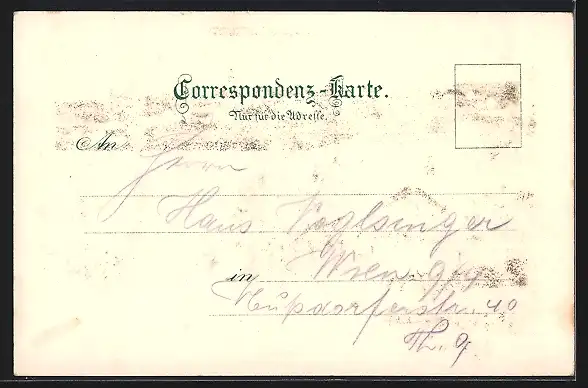 Correspondenz-Karte.
Nur für die Adresse.
An Herrn
Hans Voglsinger
in Wien
Nußdorferstr. 40
Th. 9